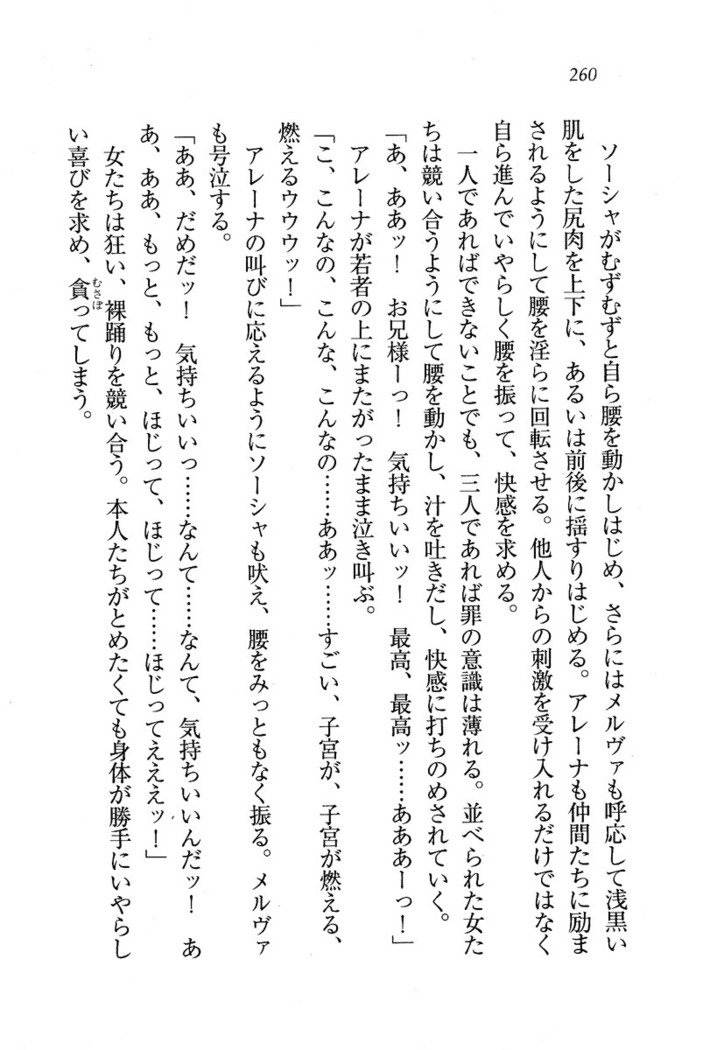 260
ソーシャがむずむずと自ら腰を動かしはじめ、さらにはメルヴァも呼応して浅黒い
肌をした尻肉を上下に、あるいは前後に揺すりはじめる。アレーナも仲間たちに励ま
されるようにして腰を淫らに回転させる。他人からの刺激を受け入れるだけではなく
自ら進んでいやらしく腰を振って、快感を求める。
一人であればできないことでも、三人であれば罪の意識は薄れる。並べられた女た
ちは競い合うようにして腰を動かし、汁を吐きだし、快感に打ちのめされていく。
「あ、ああッ！　お兄様ーっ！　気持ちいいッ！　最高、最高ッ……あああーっ！」
アレーナが若者の上にまたがったまま泣き叫ぶ。
「こ、こんなの、こんな、こんなの……ああッ……すごい、子宮が、子宮が燃える、
燃えるウウウッ！」
アレーナの叫びに応えるようにソーシャも吠え、腰をみっともなく振る。メルヴァ
も号泣する。
「ああ、だめだッ！　気持ちいいっ……なんて……なんて、気持ちいいんだッ！　あ
あ、ああ、もっと、もっと、ほじって、ほじって……ほじってえええッ！」
女たちは狂い、裸踊りを競い合う。本人たちがとめたくても身体が勝手にいやらし
い喜びを求め、貪ってしまう。
むさぼ